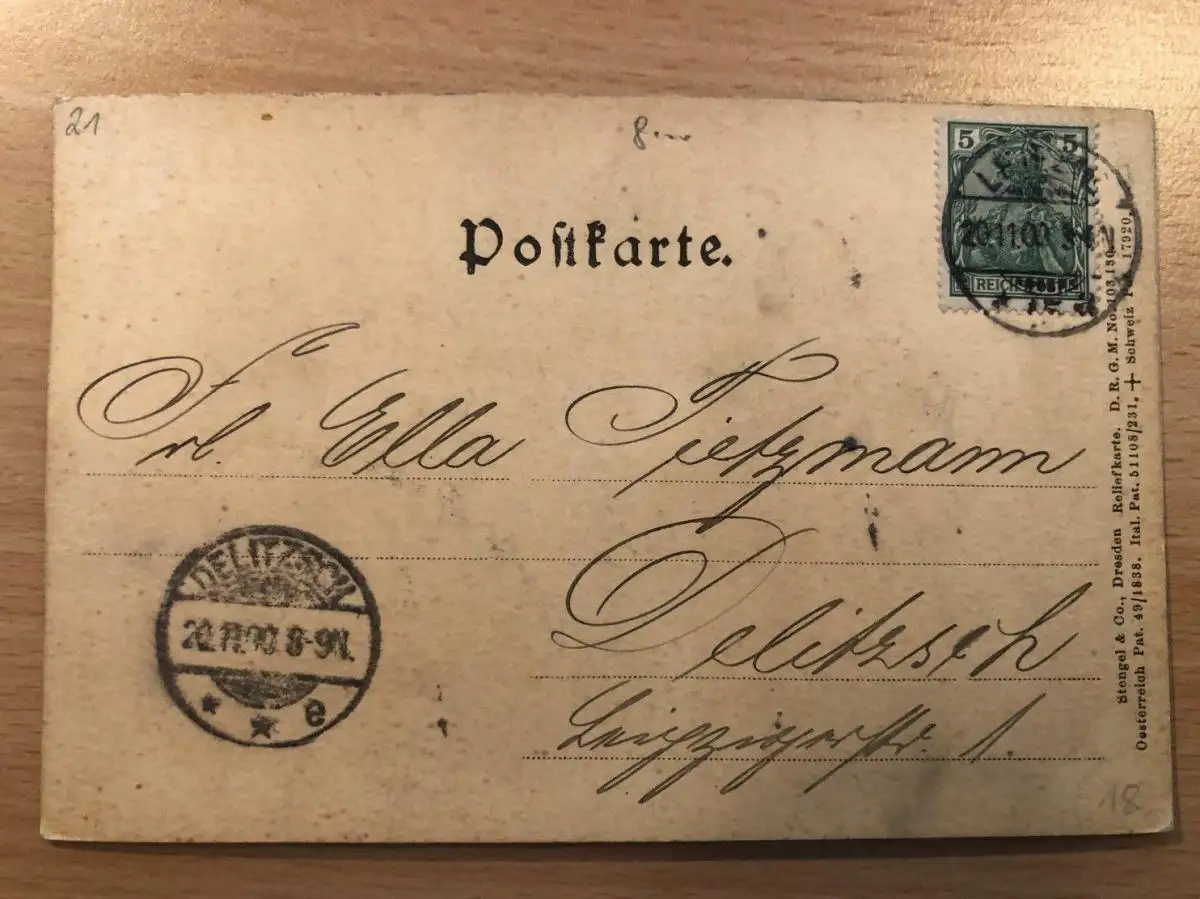 21
Postkarte.
5 5
20.11.00
REICHSPOST
Frl. Ella Tietzmann
Delitzsch
Leipzigerstr. 1.
DELITZSCH
20.11.00. 8-9N.
* * e
Stengel & Co., Dresden Reliefkarte. D. R. G. M. No. 103,130.
Oesterreich Pat. 49/1838. Ital. Pat. 51108/231. + Schweiz Pat. 17920.
18